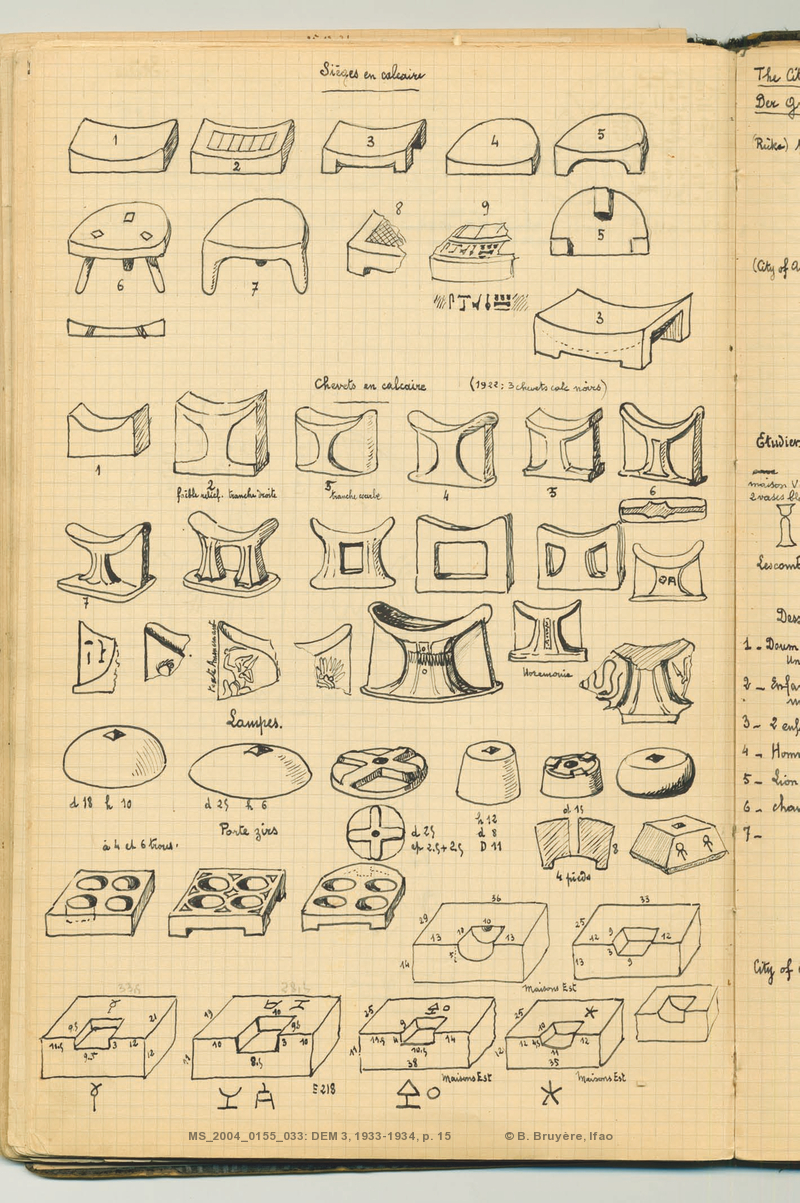 Sièges en calcaire
1
2
3
4
5
6
7
8
9
5
3
Chevets en calcaire (1922 : 3 chevets calc noirs)
1
2
3
4
5
6
faible relief. tranche droite
tranche courbe
7
Lampes.
d 18 h 10
d 25 h 6
d 25
ep 2.5+2.5
h 12
d 8
D 11
d 15
8
4 pieds
Porte zirs
à 4 et 6 trous.
36
29
10
13
10
13
5
14
Maisons Est
33
25
12
9
12
3
9
13
9.5
21
11.5
9.5
3
12
12
10
9.5
10
8.5
3
10
E 218
25
9
14
10.5
38
Maisons Est
25
10
12
12
11
35
Maisons Est
The Cit
Der G
(City of A
Etudier
maison V
2 vases
Les comb
Des
1 - Doum
Un
2 - Enfa
3 - 2 enf
4 - Homm
5 - Lion
6 - chau
7 -
City of
MS_2004_0155_033: DEM 3, 1933-1934, p. 15 © B. Bruyère, Ifao